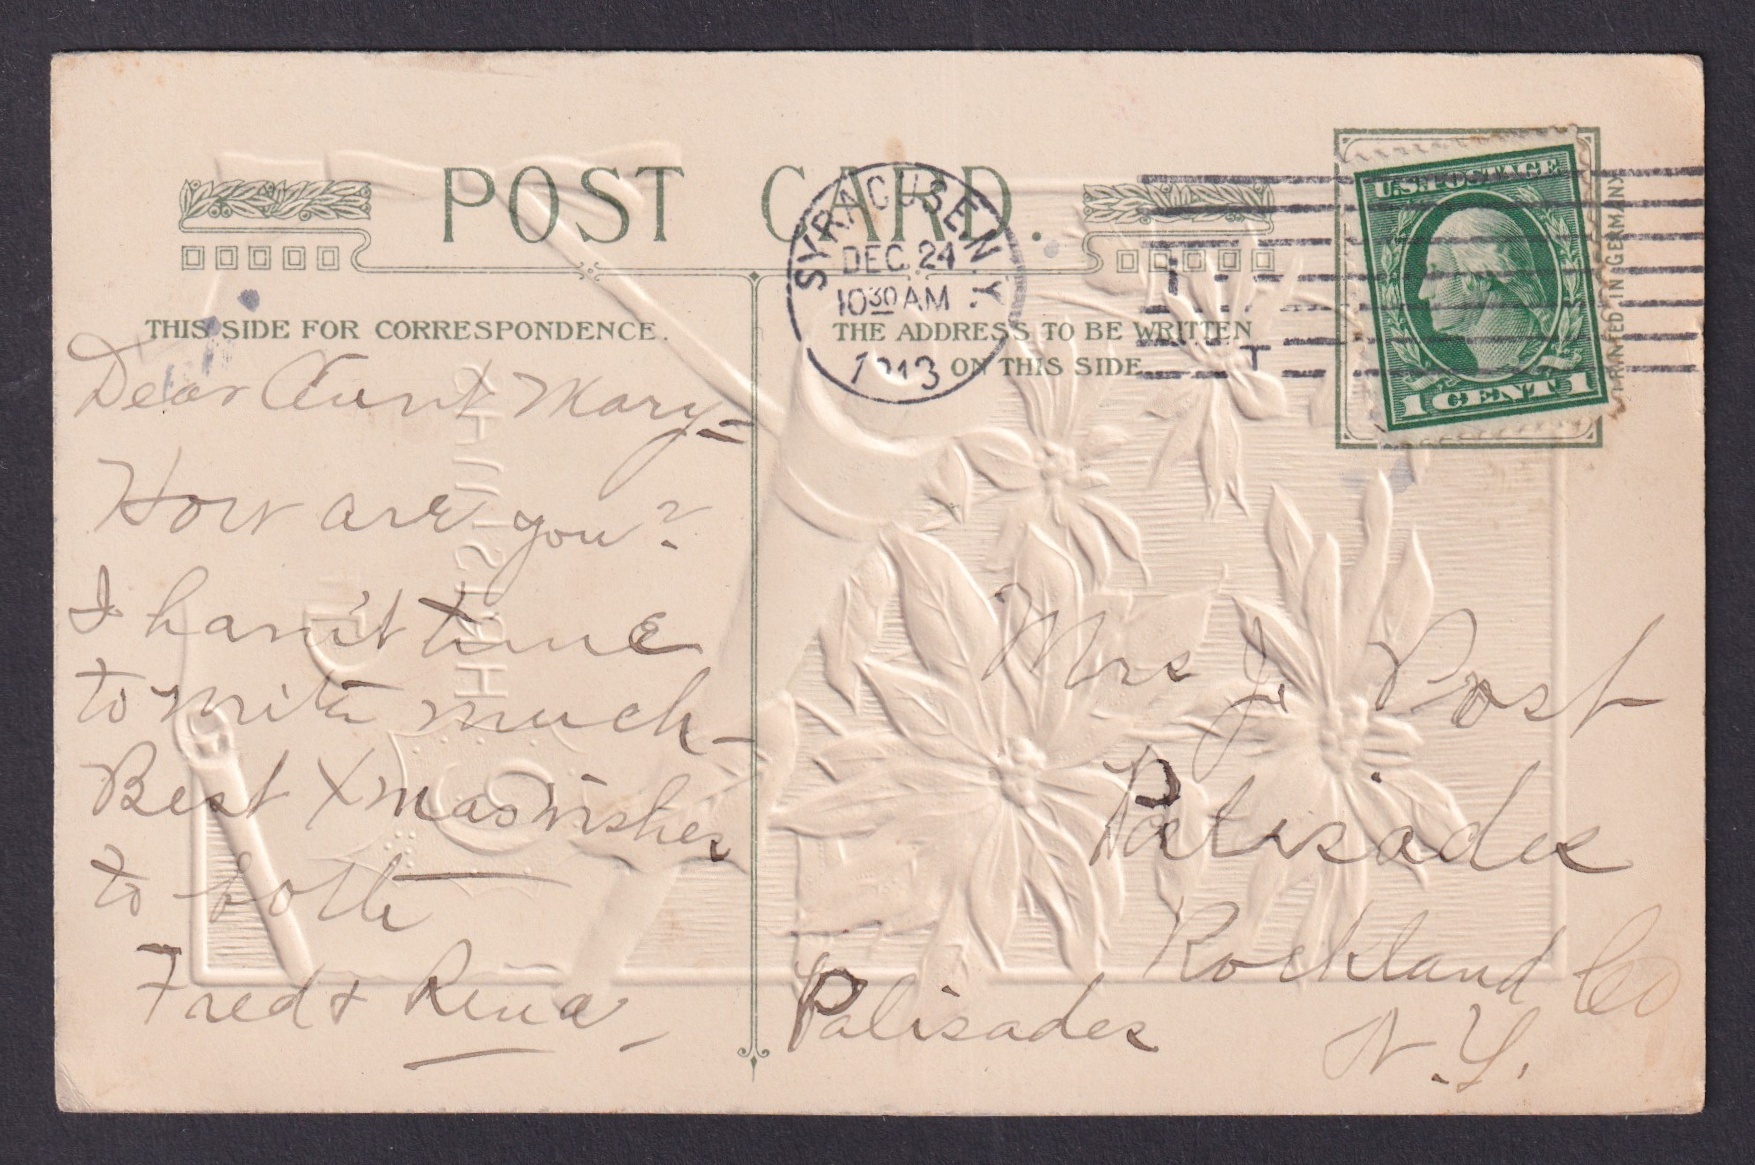 POST CARD.
THIS SIDE FOR CORRESPONDENCE.
Dear Aunt Mary=
How are you?
I hav'nt time
to write much—
Best Xmas wishes
to both
Fred & Rena—
SYRACUSE N.Y.
DEC. 24
10 30 AM
1913
THE ADDRESS TO BE WRITTEN
ON THIS SIDE
U.S. POSTAGE
1 CENT 1
PRINTED IN GERMANY
Mrs J. Post
Palisades
Rockland Co
Palisades
N.Y.